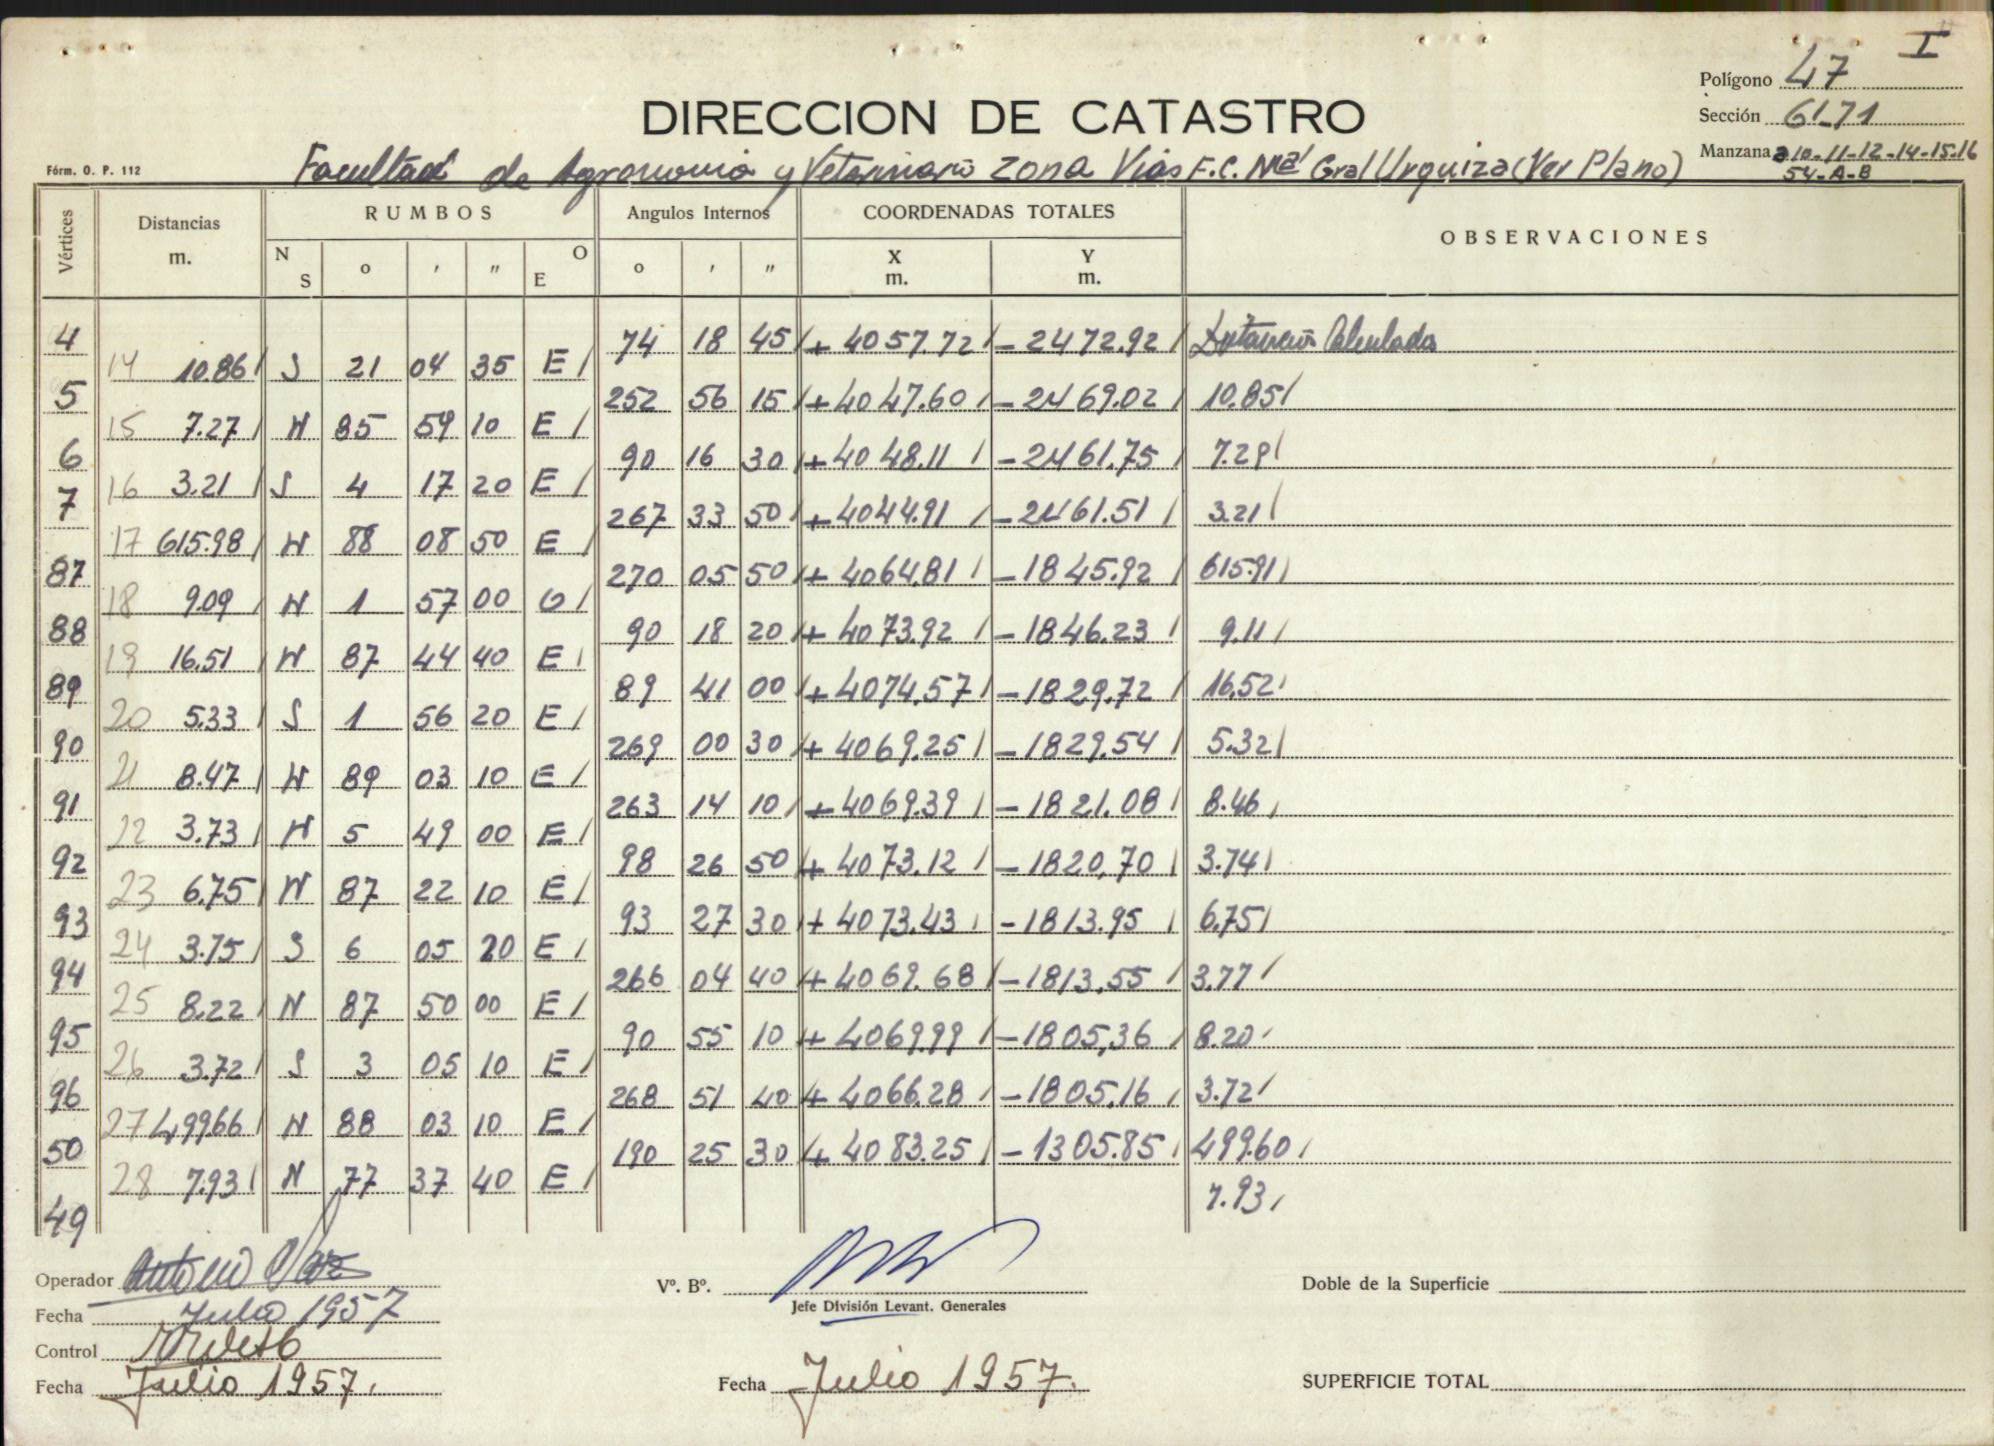 I
Polígono 47
DIRECCION DE CATASTRO
Sección 61-71
Manzana 10-11-12-14-15-16
54-A-B
Fórm. O. P. 112
Facultad de Agronomia y Veterinaria Zona Vias F.C. Nal Gral Urquiza (Ver Plano)
Vértices Distancias m. RUMBOS Angulos Internos COORDENADAS TOTALES OBSERVACIONES
N S o ' " O E o ' " X m. Y m.
4 74 18 45 + 4057.72 - 2472.92 Distancia Calculada
14 10.86 S 21 04 35 E
5 252 56 15 + 4047.60 - 2469.02 10.85
15 7.27 N 85 59 10 E
6 90 16 30 + 4048.11 - 2461.75 7.29
16 3.21 S 4 17 20 E
7 267 33 50 + 4044.91 - 2461.51 3.21
17 615.98 N 88 08 50 E
87 270 05 50 + 4064.81 - 1845.92 615.91
18 9.09 N 1 57 00 O
88 90 18 20 + 4073.92 - 1846.23 9.11
19 16.51 N 87 44 40 E
89 89 41 00 + 4074.57 - 1829.72 16.52
20 5.33 S 1 56 20 E
90 269 00 30 + 4069.25 - 1829.54 5.32
21 8.47 N 89 03 10 E
91 263 14 10 + 4069.39 - 1821.08 8.46
22 3.73 N 5 49 00 E
92 98 26 50 + 4073.12 - 1820,70 3.74
23 6.75 N 87 22 10 E
93 93 27 30 + 4073.43 - 1813.95 6.75
24 3.75 S 6 05 20 E
94 266 04 40 + 4069.68 - 1813,55 3.77
25 8.22 N 87 50 00 E
95 90 55 10 + 4069.99 - 1805,36 8.20
26 3.72 S 3 05 10 E
96 268 51 40 + 4066.28 - 1805.16 3.72
27 499.66 N 88 03 10 E
50 190 25 30 + 4083.25 - 1305.85 499.60
28 7.93 N 77 37 40 E
49 7.93
Operador Antonio
Fecha Julio 1957
Control
Fecha Julio 1957.
Vº. Bº.
Jefe División Levant. Generales
Fecha Julio 1957.
Doble de la Superficie
SUPERFICIE TOTAL